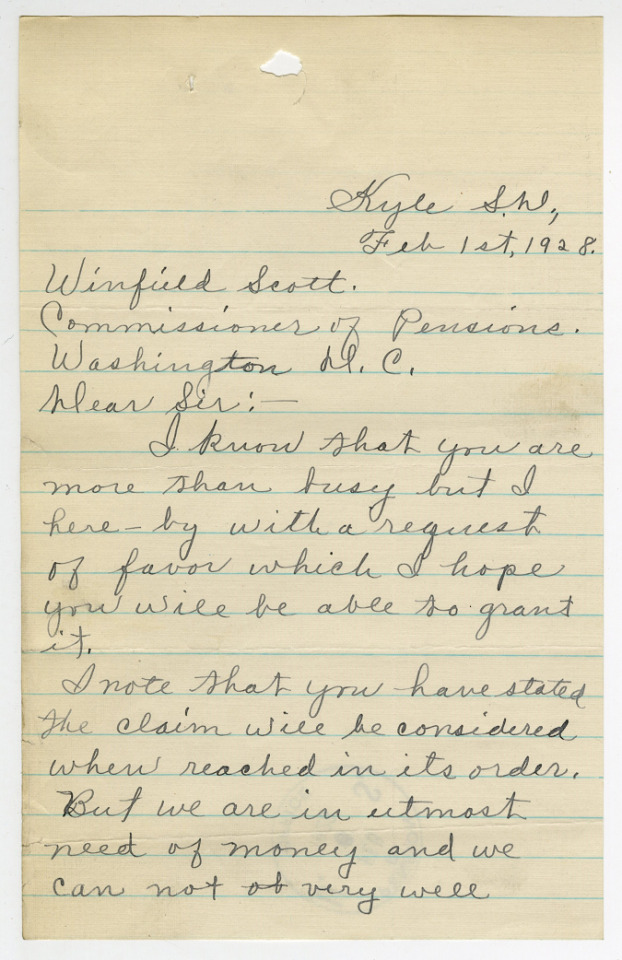 Kyle S.D.,
Feb 1st, 1928.
Winfield Scott.
Commissioner of Pensions.
Washington D. C.
Dear Sir:—
I know that you are
more than busy but I
here-by with a request
of favor which I hope
you will be able to grant
it.
I note that you have stated
the claim will be considered
when reached in its order.
But we are in utmost
need of money and we
can not ob very well